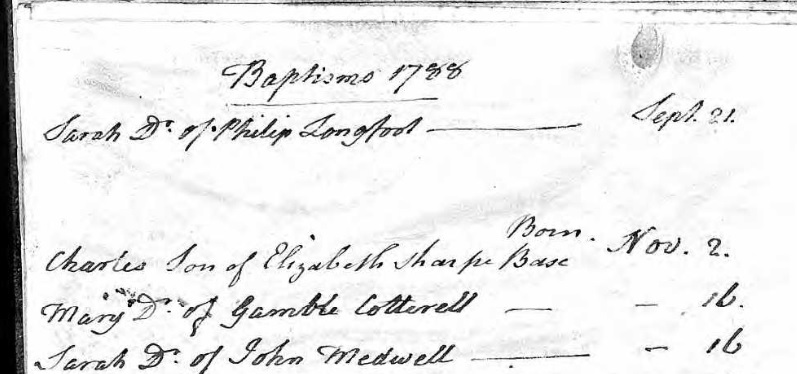 Baptisms 1788
Sarah Dr. of Philip Longfoot — Sept. 21.
Born.
Charles Son of Elizabeth Sharpe Base Nov. 2.
Mary Dr. of Gamble Cotterell — — 16.
Sarah Dr. of John Medwell — — 16